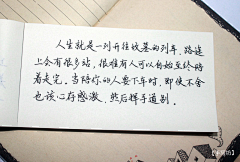 人生就是一列开往坟墓的列车，路途
上会有很多站，很难有人可以自始至终陪
着走完。当陪你的人要下车时，即使不舍
也该心存感激，然后挥手道别。